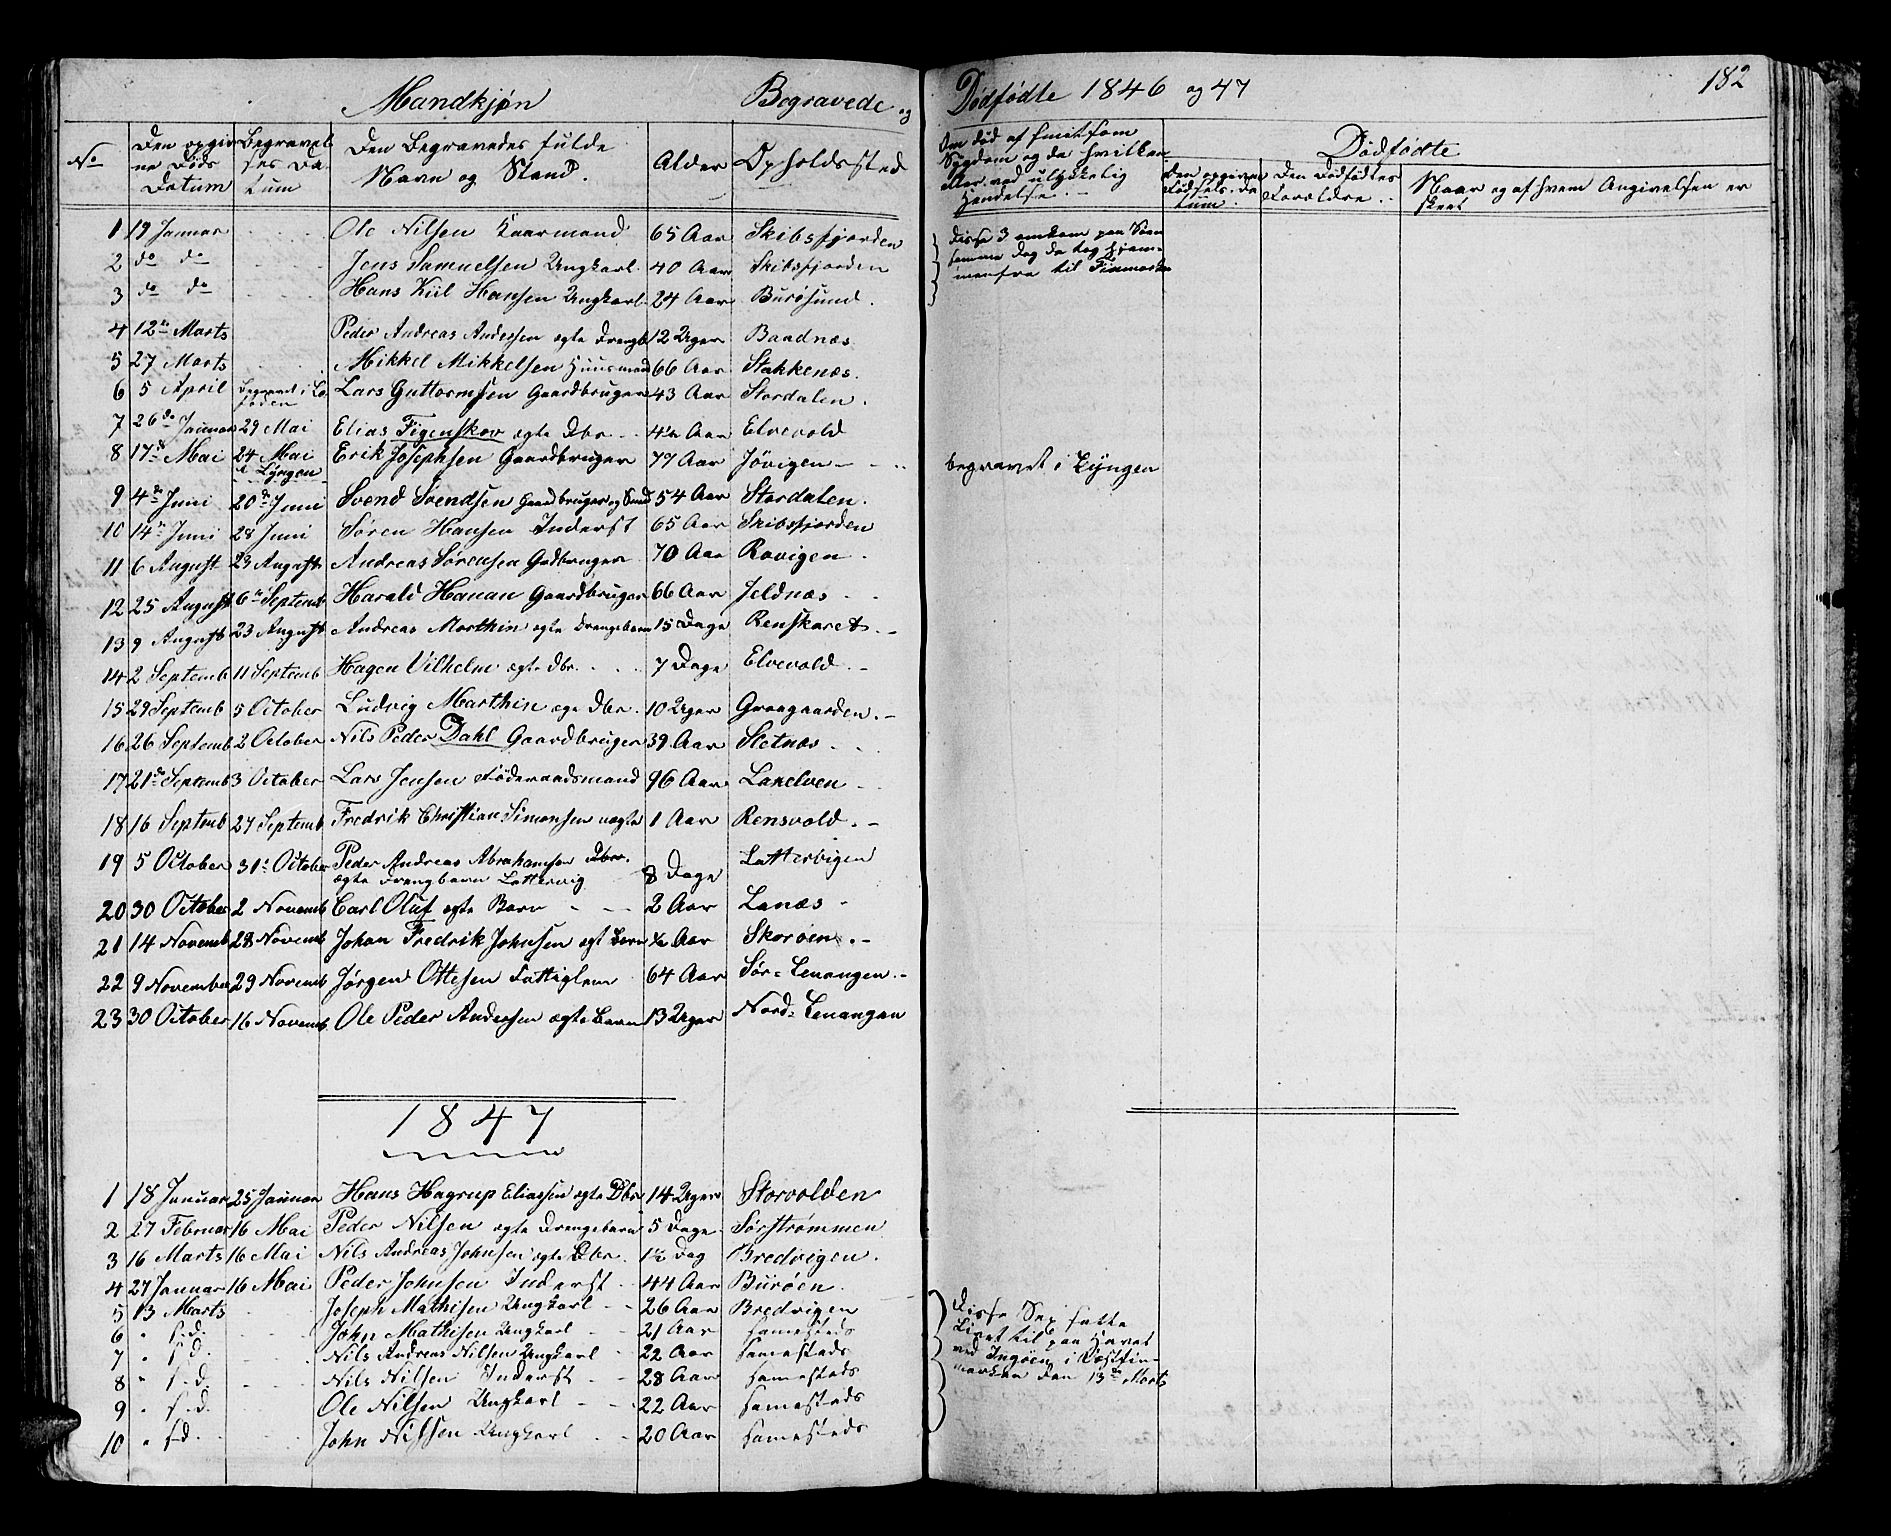 Mandkjøn Begravede og Dødfødte 1846 og 47 182
No
Den opgivne Døds Datum
Begravelses Datum
Den Begravedes fulde Navn og Stand.
Alder
Opholdssted
Om død af smitsom Sygdom og da hvilken eller ved ulykkelig Hendelse. -
Dødfødte
Den opgivne Fødsels Datum.
Den Dødfødtes Forældre..
Naar og af hvem Angivelsen er skeet
1 19 Januar Ole Nilsen Kaarmand 65 Aar Skibsfjorden
2 do do Jens Samuelsen Ungkarl. 40 Aar Skibsfjorden
3 do do Hans Kiil Hansen Ungkarl. 24 Aar Burøsund.
Disse 3 omkom paa Søen
samme Dag de tog hjem-
menfra til Finmarken
4 12te Marts Peder Andreas Anderssen ægte Drengb. 12 Uger Baadnæs
5 27 Marts Mikkel Mikkelsen Huusmand 66 Aar Stakkenæs.
6 5 April Begravet i Lofoden Lars Guttormsen Gaardbruger 43 Aar Stordalen.
7 26de Januar 29 Mai Elias Figenskov ægte Dbr. - 4½ Aar Elvevold
8 17de Mai 24 Mai i Lyngen Erik Josephsen Gaardbruger 79 Aar Jøvigen - begravet i Lyngen
9 4de Juni 20de Juni Svend Svendsen Gaardbruger og 54 Aar Stordalen.
10 14de Juni 28 Juni Søren Hansen Inderst 65 Aar Skibsfjorden
11 6 August 23 August Andreas Sørensen Gdbruger 70 Aar Ravigen.
12 25 August 6te Septemb Harald Hanan Gaardbruger 66 Aar Jeldnæs - -
13 9 August 23 August Andreas Marthin ægte Drengebarn 15 Dage Renskaret. -
14 2 Septemb 11 Septemb Hagen Vilhelm ægte Dbr. 7 Dage Elvevold. -
15 29 Septemb 5 October Ludvig Marthin ægte Dbr. 10 Uger Graagaarden. -
16 26 Septemb 2 October Nils Peder Dahl Gaardbruger 39 Aar Sletnæs -
17 21de Septemb 3 October Lars Jensen Føderaadsmand 96 Aar Lakelven -
18 16 Septemb 27 Septemb Fredrik Christian Simonsen uægte 1 Aar Rensvold. -
19 5 October 31te October Peder Andreas Abrahamsen Dbr. 8 Dage Lattervigen
ægte Drengbarn Lattervig
20 30 October 2 Novemb Carl Oluf ægte Barn - - 2 Aar Lanæs -
21 14 Novemb 28 Novemb Johan Fredrik Johnsen ægt Barn ½ Aar Skorøen. -
22 9 November 29 Novemb Jørgen Ottesen Fattiglem 64 Aar Sør-Lenangen. -
23 30 October 16 Novemb Ole Peder Andersen ægte Barn 13 Uger Nord-Lenangen
1847
1 18 Januar 25 Januar Hans Hagrup Eliassen ægte Dbr 14 Uger Storvolden
2 27 Februar 16 Mai Peder Nilsen ægte Drengebarn 5 Dage Sørstrømmen
3 16 Marts 16 Mai Nils Andreas Johnsen ægte Dbr. 1½ Dag Bredvigen.
4 27 Januar 16 Mai Peder Johnsen Inderst - 44 Aar Burøen.
5 13 Marts Joseph Mathisen Ungkarl - - 26 Aar Bredvigen
6 " s.d. John Mathisen Ungkarl - - 21 Aar sammesteds
7 " s.d. Nils Andreas Nilsen Ungkarl - 22 Aar sammesteds
8 " s.d. Nils Nilsen Inderst - - 28 Aar sammesteds
9 " s.d. Ole Nilsen Ungkarl - - 22 Aar sammesteds
10 " s.d. John Nilssen Ungkarl - - 20 Aar sammesteds
Disse Sex satte
Livet til paa Havet
ved Ingøen i Vestfin-
marken den 13de Marts